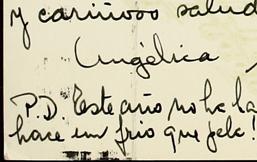 y cariñoso salud
Angélica
P.D. Este año no he ha
hace un frio que pela!